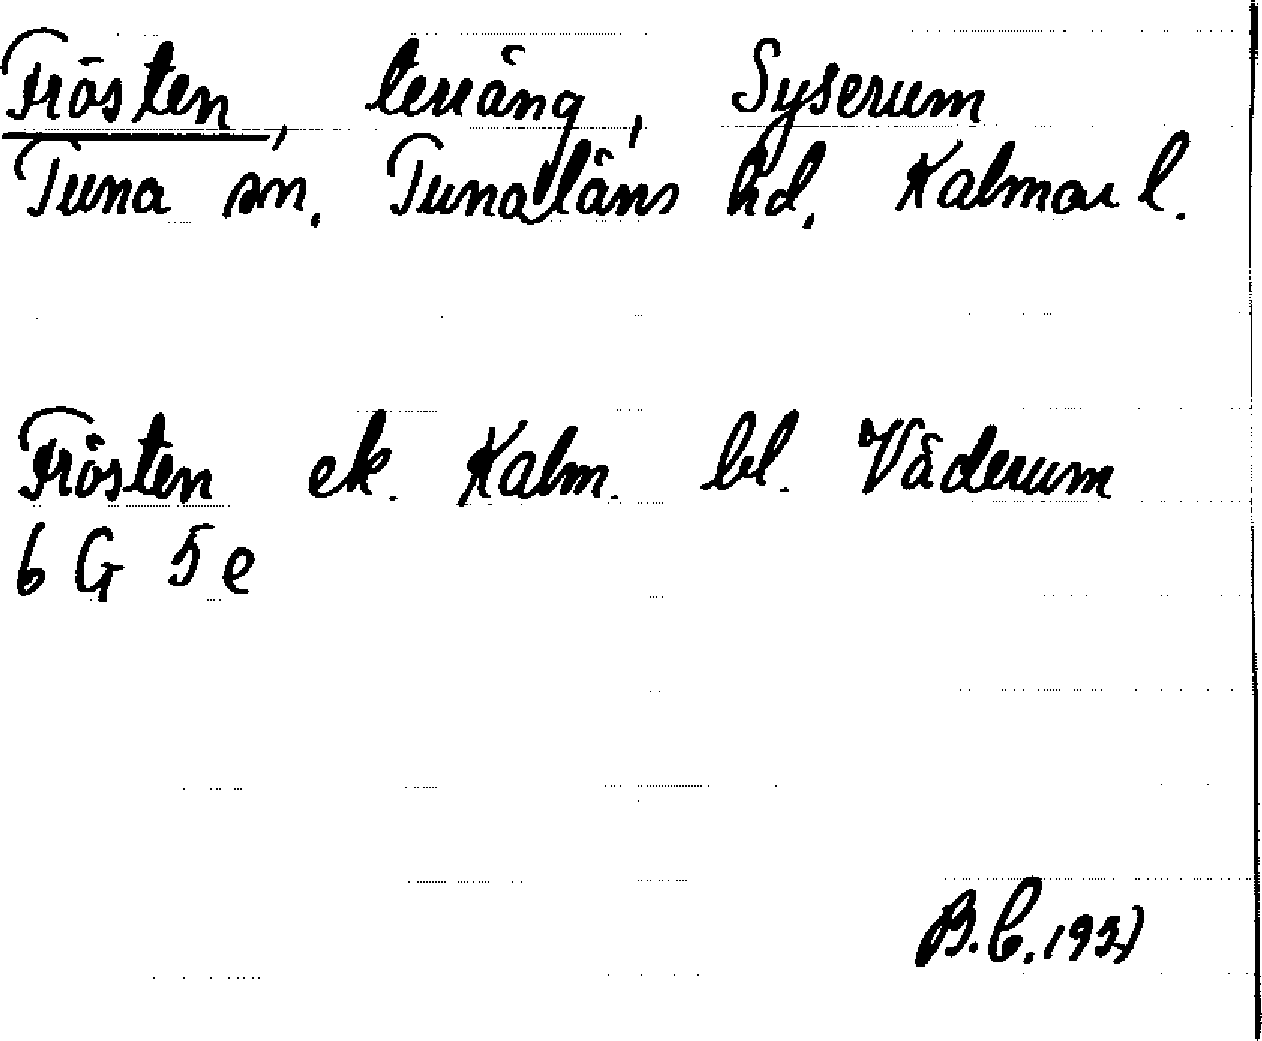 Frösten, terräng, Syserum
Tuna sn. Tunaläns hd. Kalmar l.
Frösten ek. Kalm. bl. Väderum
6 G 5 e
B.C.